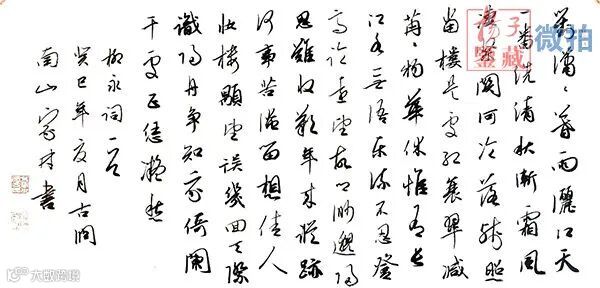 對瀟瀟暮雨灑江天
一番洗清秋漸霜風
淒緊關河冷落殘照
當樓是處紅衰翠減
苒苒物華休惟有長
江水無語東流不忍登
高臨遠望故鄉渺邈歸
思難收歎年來蹤跡
何事苦淹留想佳人
妝樓顒望誤幾回天際
識歸舟爭知我倚闌
干處正恁凝愁
柳永詞一首
癸巳年夏月古潤
南山家村書
微拍